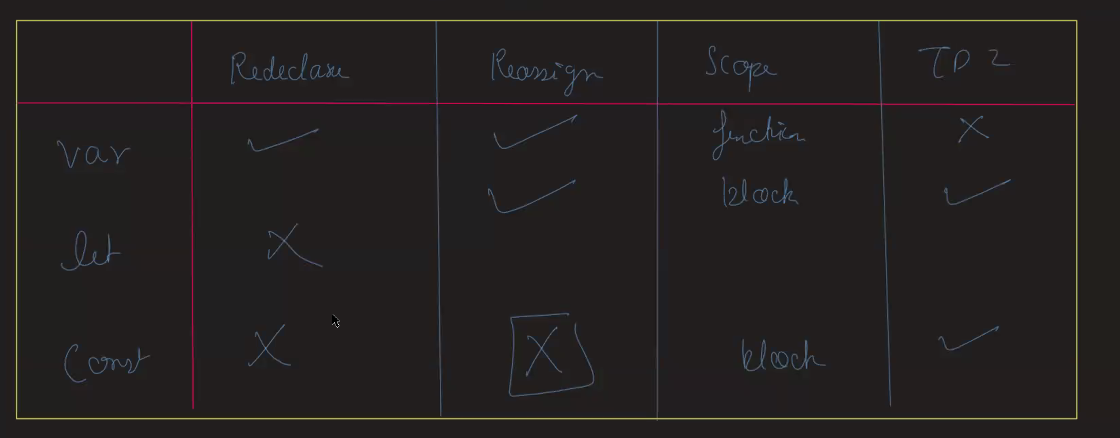 Redeclare Reassign Scope TDZ
var ✓ ✓ function ✗
let ✗ ✓ block ✓
Const ✗ ✗ block ✓